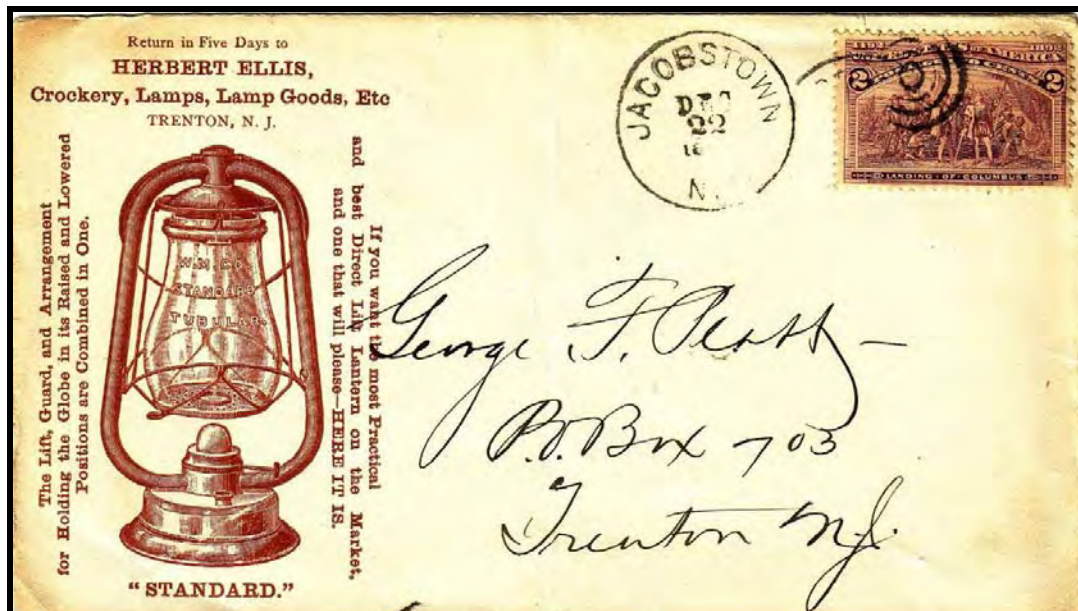 Return in Five Days to
HERBERT ELLIS,
Crockery, Lamps, Lamp Goods, Etc
TRENTON, N. J.
The Lift, Guard, and Arrangement
for Holding the Globe in its Raised and Lowered
Positions are Combined in One.
STANDARD
TUBULAR.
If you want the most Practical
and best Direct Lift Lantern on the Market,
and one that will please—HERE IT IS.
"STANDARD."
JACOBSTOWN
DEC
22
N.
1492 1892
OF AMERICA
2 2
LANDING OF COLUMBUS
George F.
P.O. Box 703
Trenton N.J.